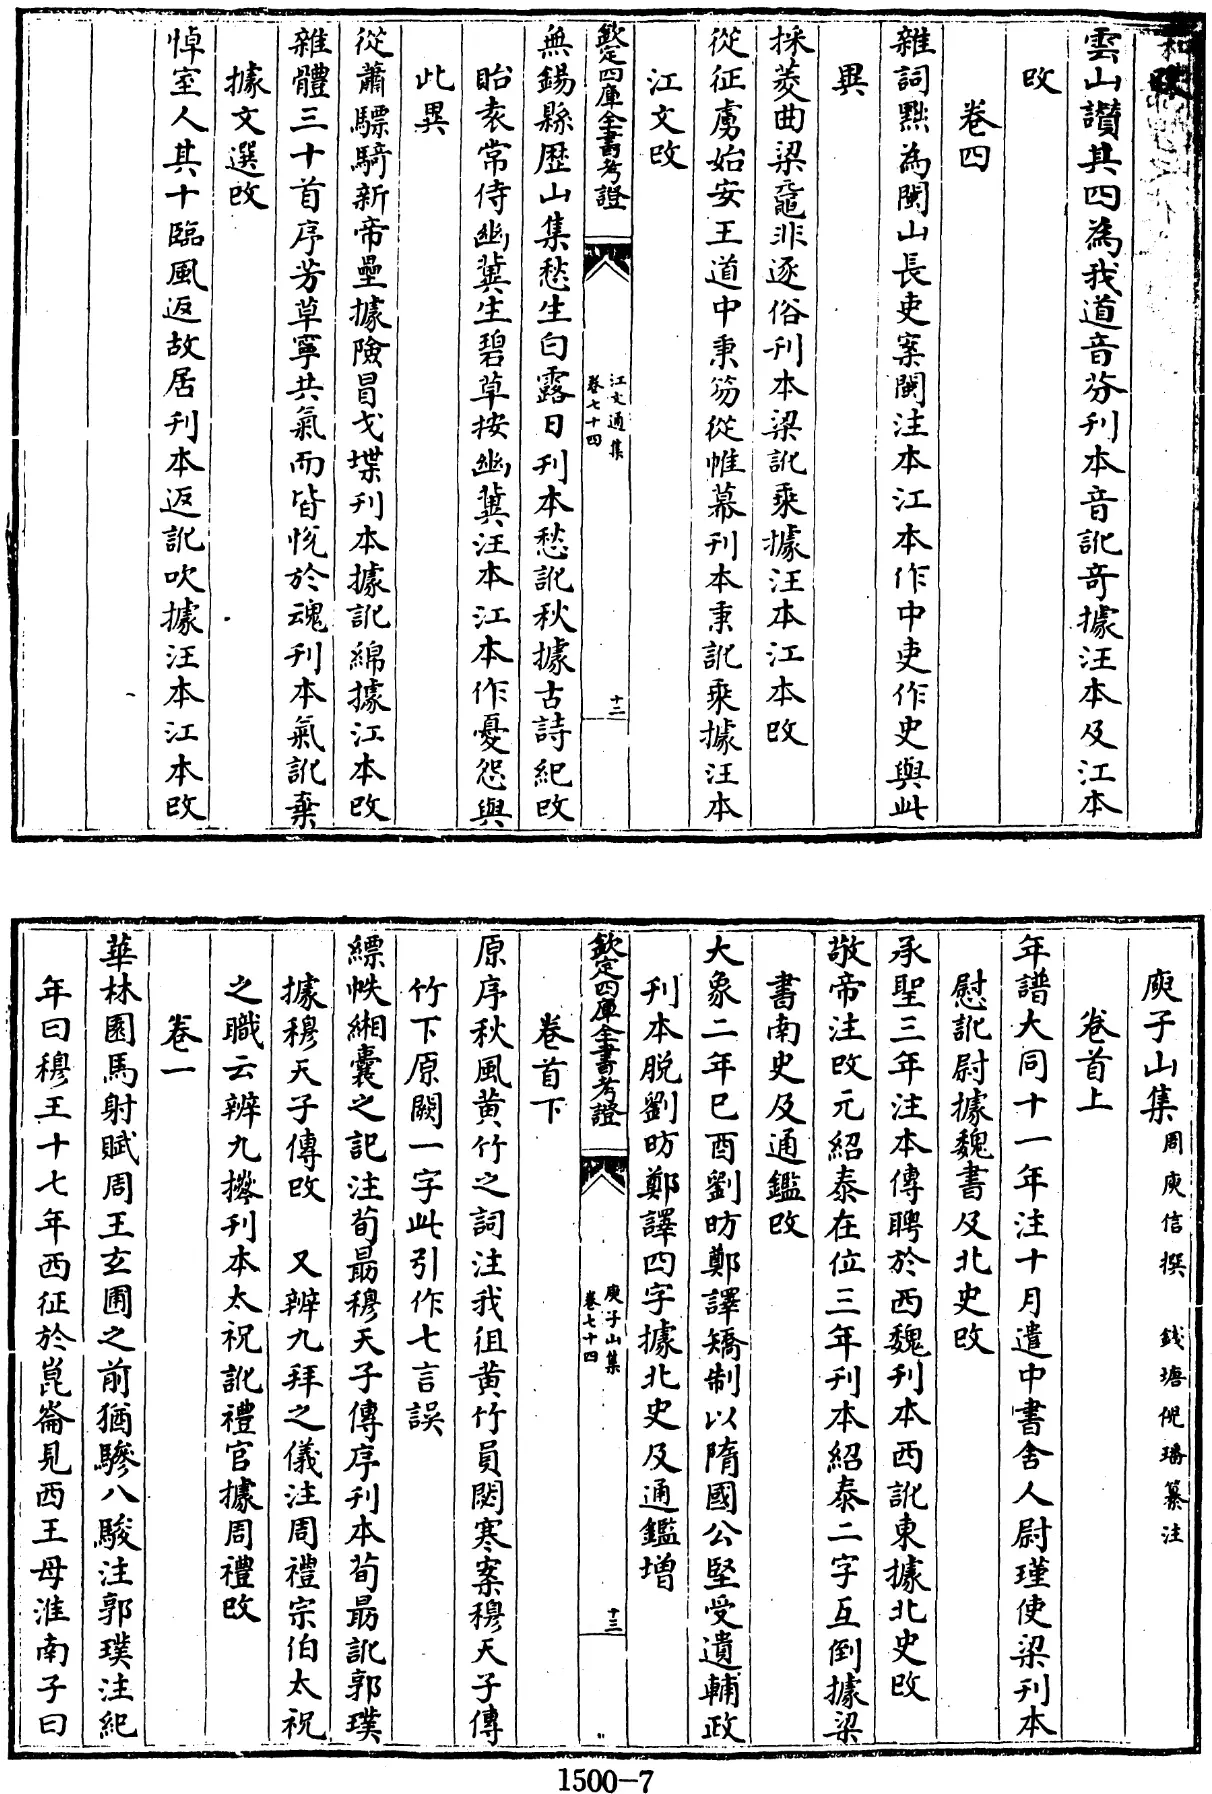 雲山讚其四為我道音芬刋本音訛奇據汪本及江本
改
卷四
雜詞㸃為閩山長吏案閩注本江本作中吏作史與此
異
採菱曲梁黿非逐俗刋本梁訛乘據汪本江本改
從征虜始安王道中秉笏從帷幕刋本秉訛乘據汪本
江文改
欽定四庫全書考證
江文通集
卷七十四
十二
無錫縣歴山集愁生白露日刋本愁訛秋據古詩紀改
貽袁常侍幽冀生碧草按幽冀汪本江本作憂怨與
此異
從蕭驃騎新帝壘據險冒戈堞刋本據訛綿據江本改
雜體三十首序芳草寧共氣而皆悅於魂刋本氣訛棄
據文選改
悼室人其十臨風返故居刋本返訛吹據汪本江本改
庾子山集周庾信撰 錢塘倪璠纂注
卷首上
年譜大同十一年注十月遣中書舍人尉瑾使梁刋本
慰訛尉據魏書及北史改
承聖三年注本傳聘於西魏刋本西訛東據北史改
敬帝注改元紹泰在位三年刋本紹泰二字互倒據梁
書南史及通鑑改
大象二年已酉劉昉鄭譯矯制以隋國公堅受遺輔政
刋本脱劉昉鄭譯四字據北史及通鑑增
欽定四庫全書考證
庾子山集
卷七十四
十三
卷首下
原序秋風黄竹之詞注我徂黄竹員閟寒案穆天子傳
竹下原闕一字此引作七言誤
縹帙緗囊之記注荀勗穆天子傳序刋本荀勗訛郭璞
據穆天子傳改 又辨九拜之儀注周禮宗伯太祝
之職云辨九㩓刋本太祝訛禮官據周禮改
卷一
華林園馬射賦周王玄圃之前猶驂八駿注郭璞注紀
年曰穆王十七年西征於崑崙見西王母淮南子曰
1500-7